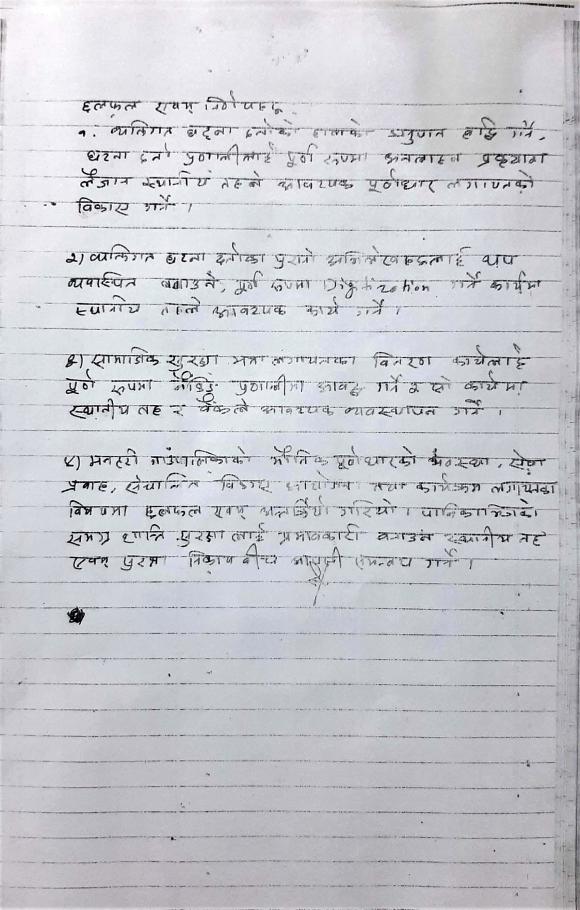 छलफल एवम् निर्णयहरू
१. व्यक्तिगत घटना दर्ताको हालको अनुपात वृद्धि गर्ने,
घटना दर्ता प्रणालीलाई पूर्ण रूपमा अनलाइन प्रकृयामा
लैजान स्थानीय तहले आवश्यक पूर्वाधार लगायतको
विकास गर्ने ।
२) व्यक्तिगत घटना दर्ताका पुराना अभिलेखहरूलाई थप
व्यवस्थित बनाउने, पूर्ण रूपमा Digitization गर्ने कार्यमा
स्थानीय तहले आवश्यक कार्य गर्ने ।
३) सामाजिक सुरक्षा भत्ता लगायतका वितरण कार्यलाई
पूर्ण रूपमा बैंकिङ प्रणालीमा आवद्ध गर्ने र सो कार्यमा
स्थानीय तह र बैंकले आवश्यक व्यवस्थापन गर्ने ।
४) मनहरी गाउँपालिकाको भौतिक पूर्वाधारको अवस्था, सेवा
प्रवाह, संचालित विकास आयोजना तथा कार्यक्रम लगायतका
विषयमा छलफल एवम् अन्तर्क्रिया गरियो । पालिका भित्रको
समग्र शान्ति सुरक्षालाई प्रभावकारी बनाउन स्थानीय तह
एवम् सुरक्षा निकाय बीच आपसी समन्वय गर्ने ।